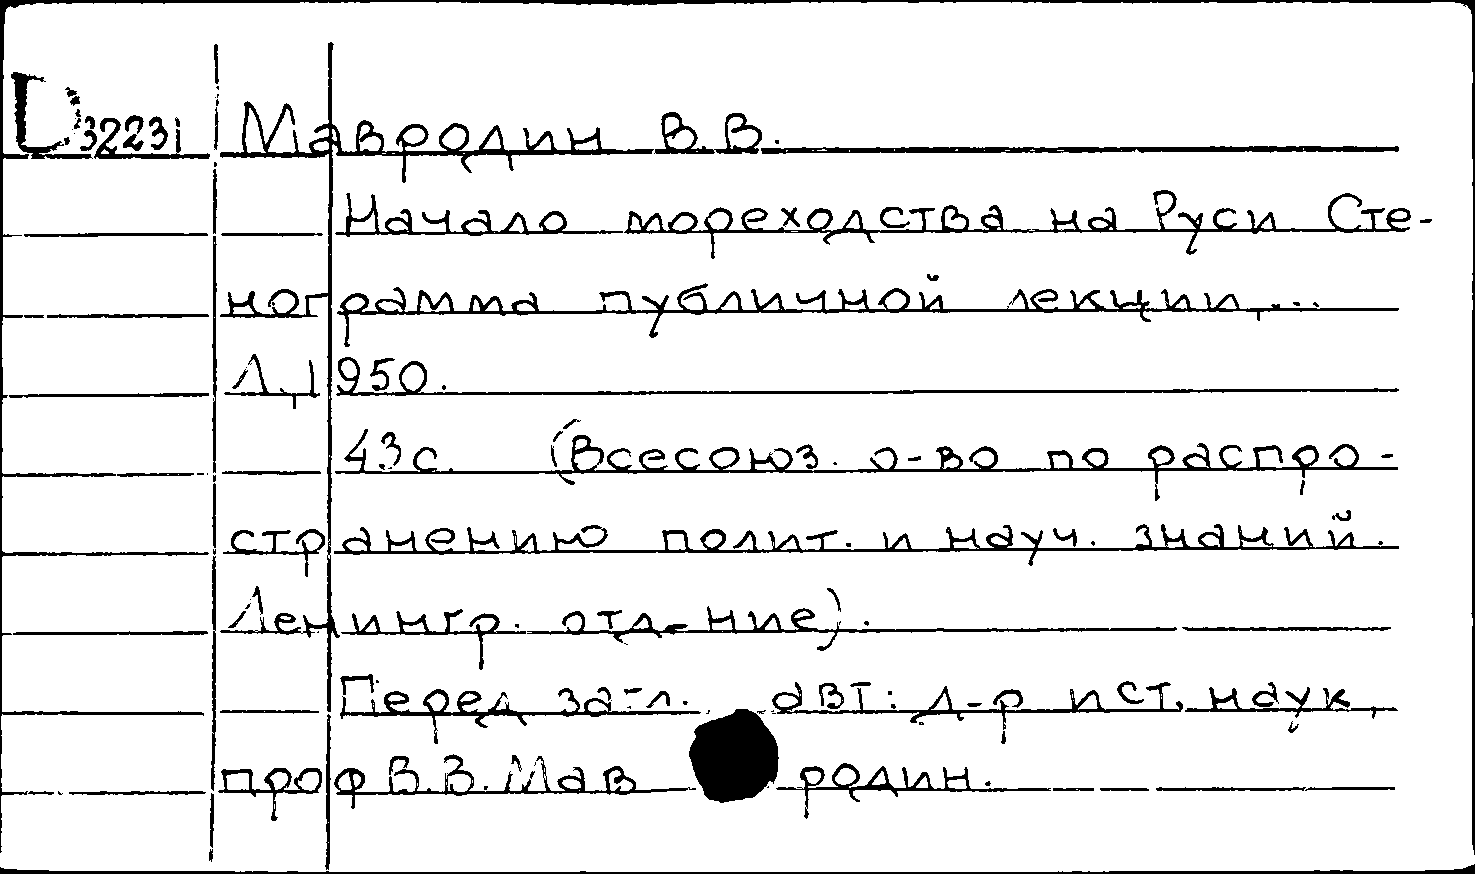 D 32231 Мавродин В.В.
Начало мореходства на Руси Сте-
нограмма публичной лекции,...
Л., 1950.
43 с. (Всесоюз. о-во по распро-
странению полит. и науч. знаний.
Ленингр. отд-ние).
Перед загл. авт: д-р ист. наук,
проф В.В. Мавродин.